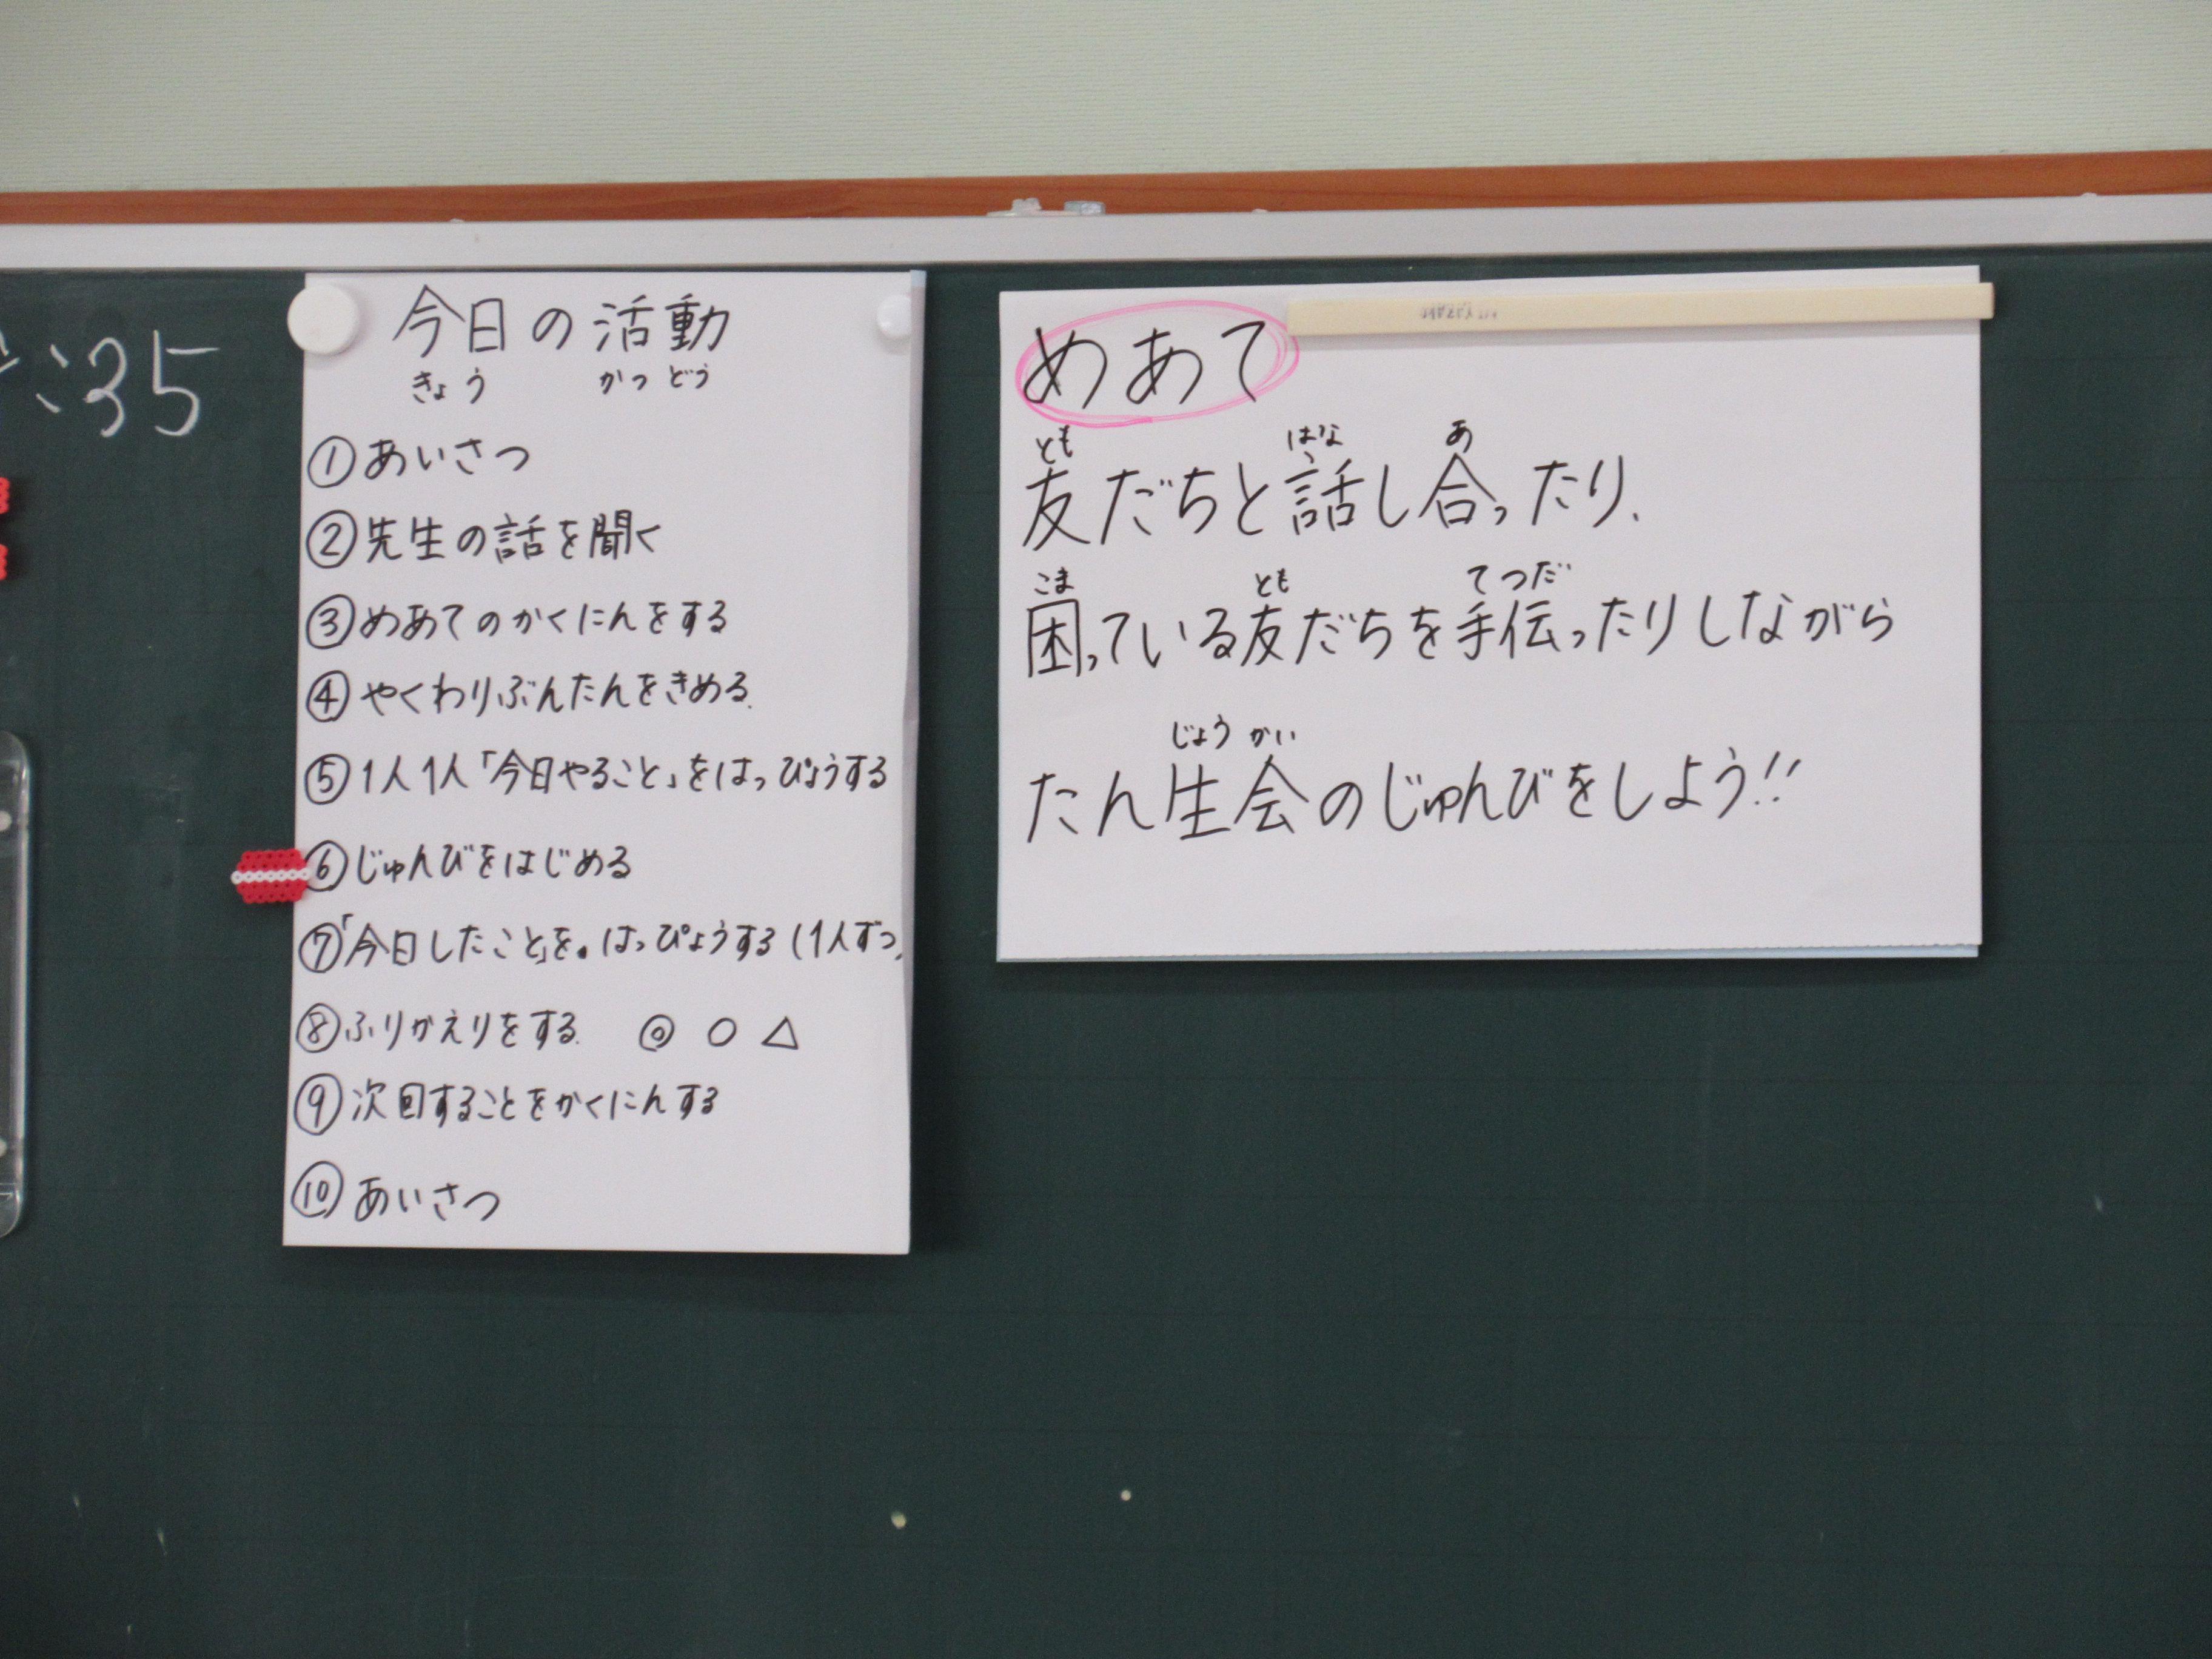 :35
今日の活動
きょう かつどう
①あいさつ
②先生の話を聞く
③めあてのかくにんをする
④やくわりぶんたんをきめる。
⑤1人1人「今日やること」をはっぴょうする
⑥じゅんびをはじめる
⑦「今日したこと」を。はっぴょうする(1人ずつ)
⑧ふりかえりをする。 ◎ ○ △
⑨次回することをかくにんする
⑩あいさつ
めあて
とも はな あ
友だちと話し合ったり、
こま とも てつだ
困っている友だちを手伝ったりしながら
じょう かい
たん生会のじゅんびをしよう!!